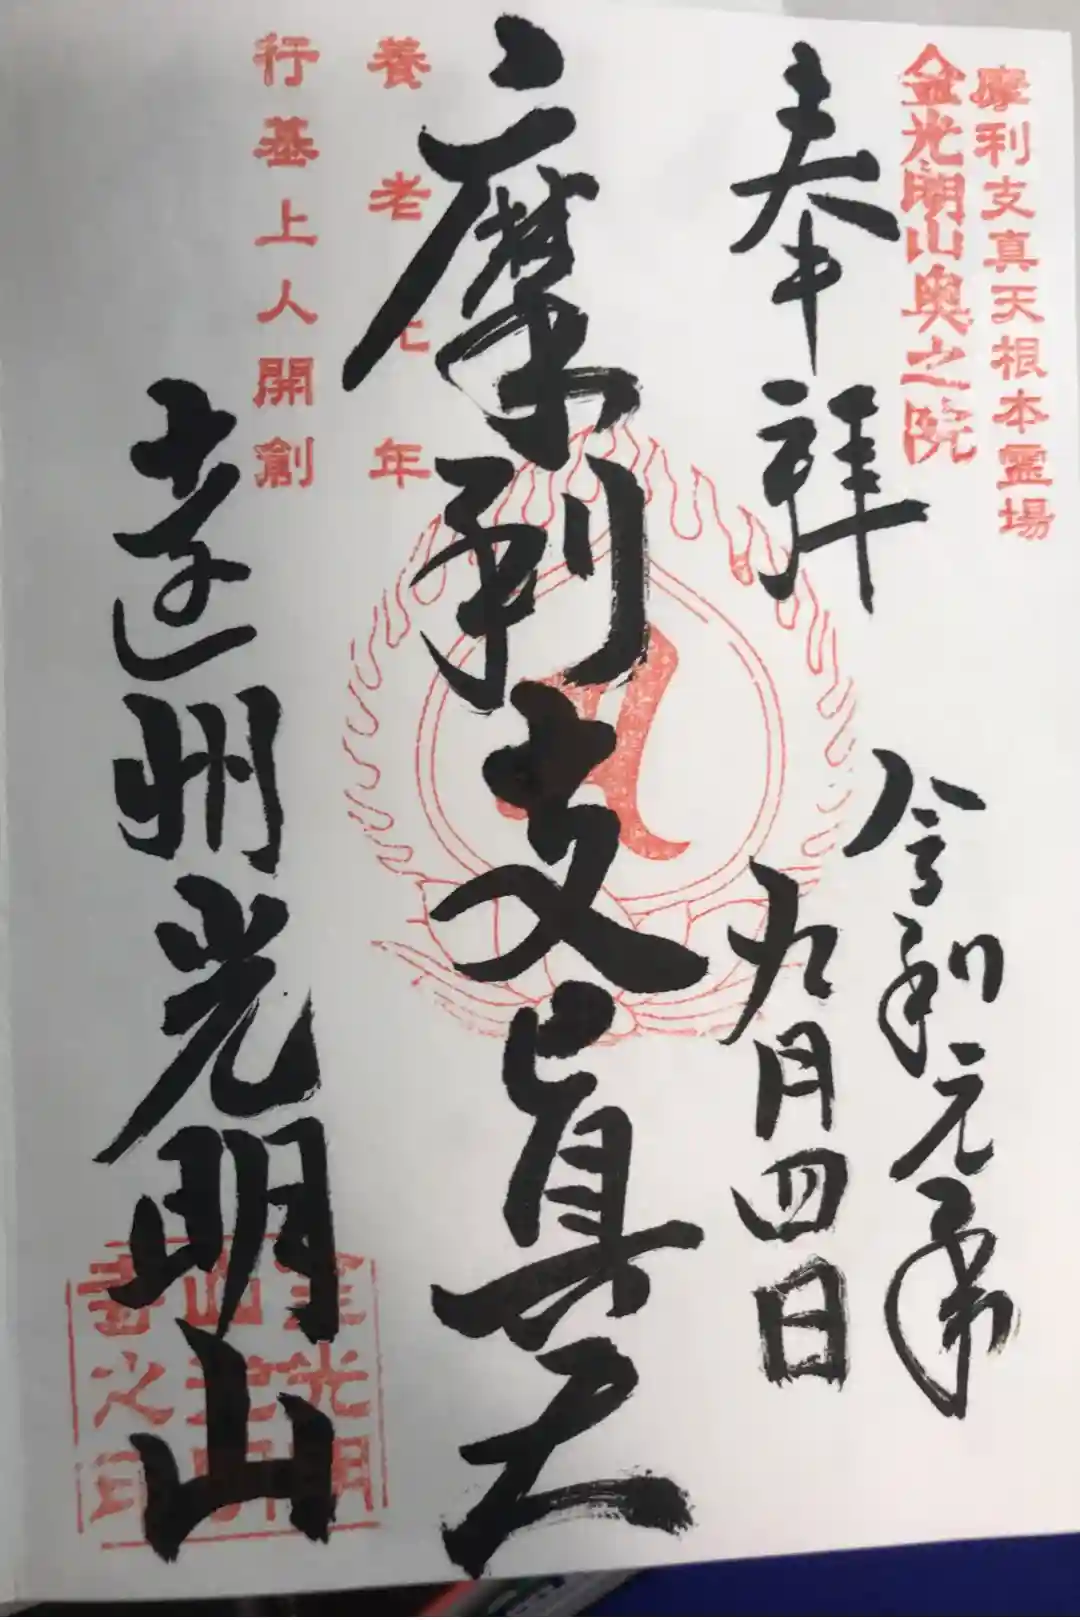 摩利支真天根本霊場
金光明山奥之院
奉拝
令和元年
九月四日
摩利支真天
養老元年
行基上人開創
遠州光明山